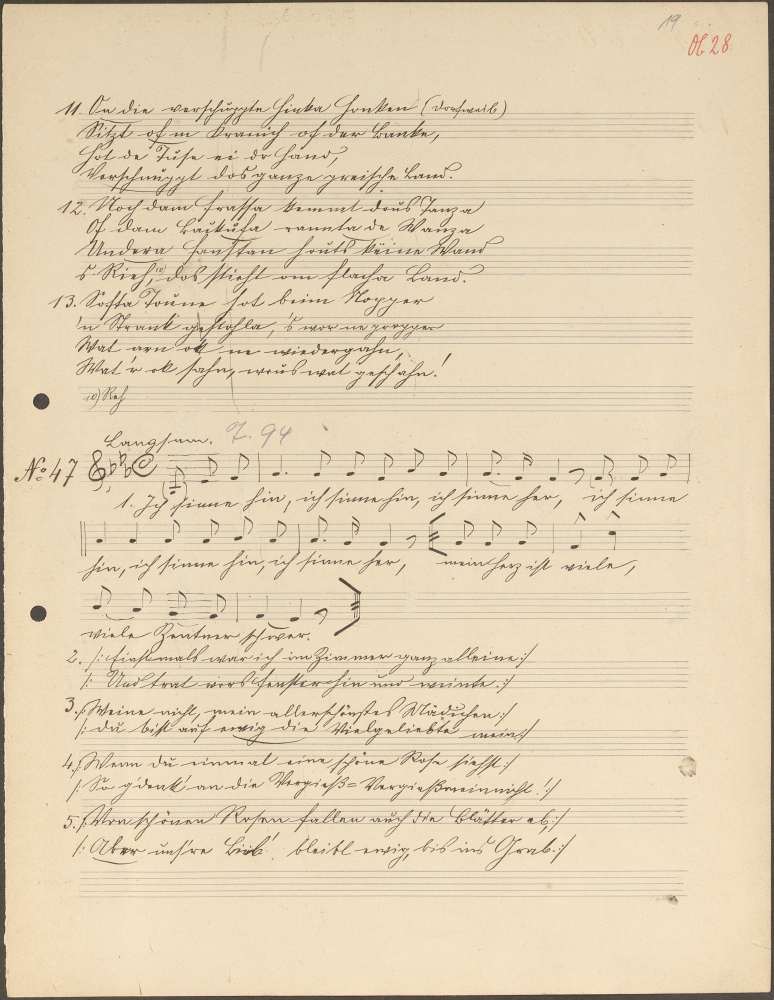 19
Ob 28
11. On die verschuppte Hinka Honken (Dorfweib)
Sitzt of m Kranich of der Banke,
Hot de Tuse ei dr Hand,
Verschnuppt dos ganze preische Land.
12. Noch dam Frassa kemmt dous Tanza
Of dam rannta de Wanza
Undera Fanstan houts keine Wand
s Rieh,¹⁰⁾ dos stieht om flacha Land.
13. Softa Toune hot beim Nopper
'n Strank gestohla, 's wor ne propper
Wat arn ok ne wiedergahn,
Wat'r ok sahn, wous wat geschahn!
10) Reh
Langsam. 7. 94
No. 47
1. Ich sinne hin, ich sinne hin, ich sinne her, ich sinne
hin, ich sinne hin, ich sinne her, mein Herz ist viele,
viele Zentner schwer.
2. /: Einstmals war ich im Zimmer ganz alleine :/
/: Und trat vors Fenster hin und weinte. :/
3. /: Weine nicht, mein allerschönstes Mädchen :/
/: du bist auf ewig die Vielgeliebte mein :/
4. /: Wenn du einmal eine schöne Rose siehst :/
/: So g'denk' an die Vergieß= Vergießmeinnicht! :/
5. /: Von schönen Rosen fallen auch die Blätter ab, :/
/: Aber uns're Lieb' bleibt ewig, bis ins Grab. :/